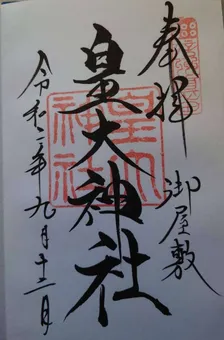 奉拝
御屋敷
皇大神社
皇大
神社
令和二年九月十二月